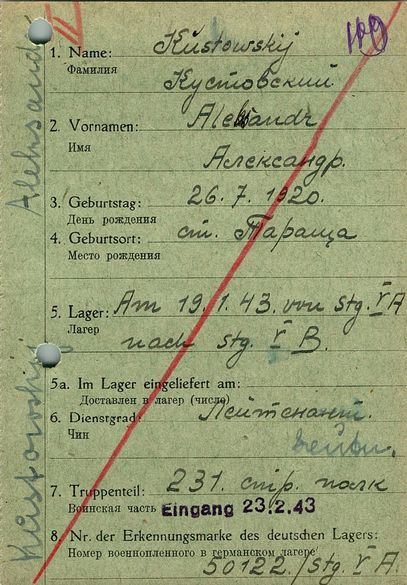 109
1. Name: Kustowskij
Фамилия Кустовский
2. Vornamen: Aleksandr
Имя Александр.
3. Geburtstag: 26.7.1920.
День рождения
4. Geburtsort: ст. Тараща
Место рождения
5. Lager: Am 19.1.43. von stg. V A
Лагерь nach stg. V B.
5a. Im Lager eingeliefert am:
Доставлен в лагерь (число)
6. Dienstgrad: Лейтенант.
Чин
7. Truppenteil: 231. стр. полк
Воинская часть Eingang 23.2.43
8. Nr. der Erkennungsmarke des deutschen Lagers:
Номер военнопленного в германском лагере
50122./stg. V A
Kustowskij Aleksandr